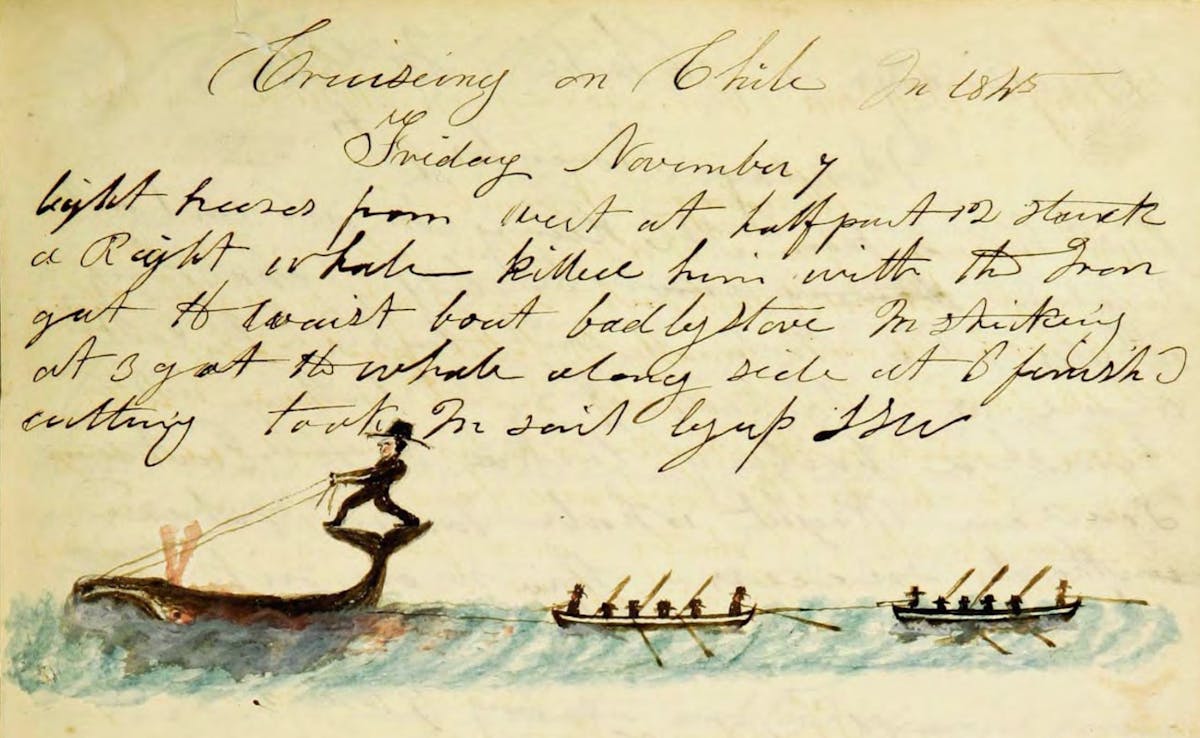 Cruiseing on Chile In 1845
Friday November 7
light breses from west at halfpast 12 struck
a Right whale killed him with the Iron
got th waist boat badly stove In striking
at 3 got th whale along side at 6 finish
cutting took In sail